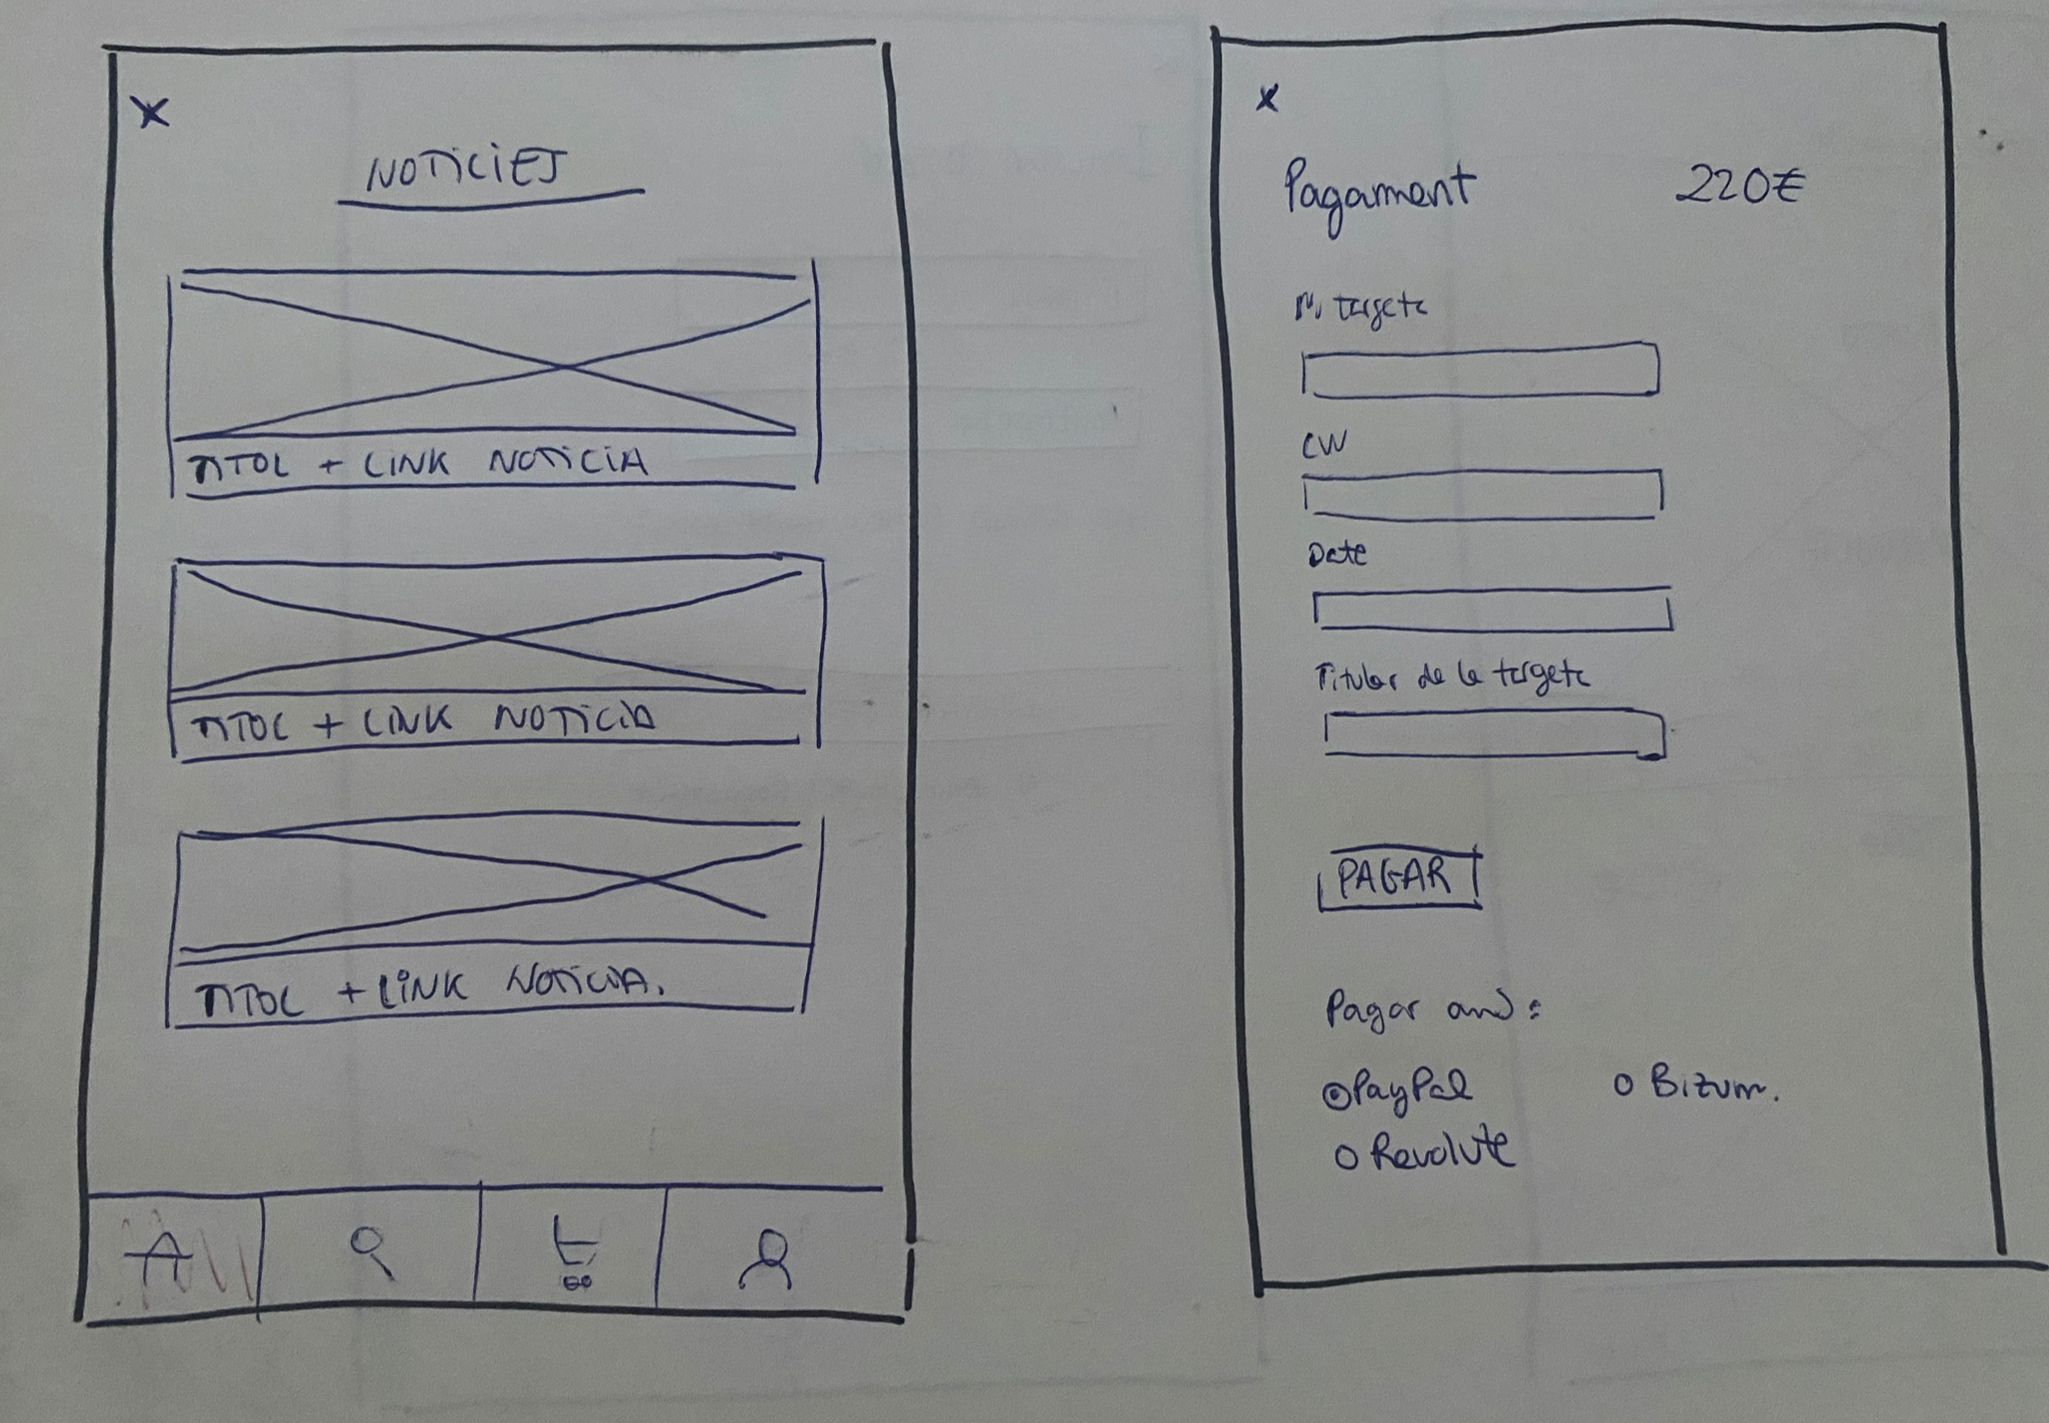 X
NOTICIES
TITOL + LINK NOTICIA
TITOL + LINK NOTICIA
TITOL + LINK NOTICIA.
X
Pagament 220€
N. targeta
CVV
Data
Titular de la targeta
PAGAR
Pagar amb:
PayPal Bizum.
Revolute